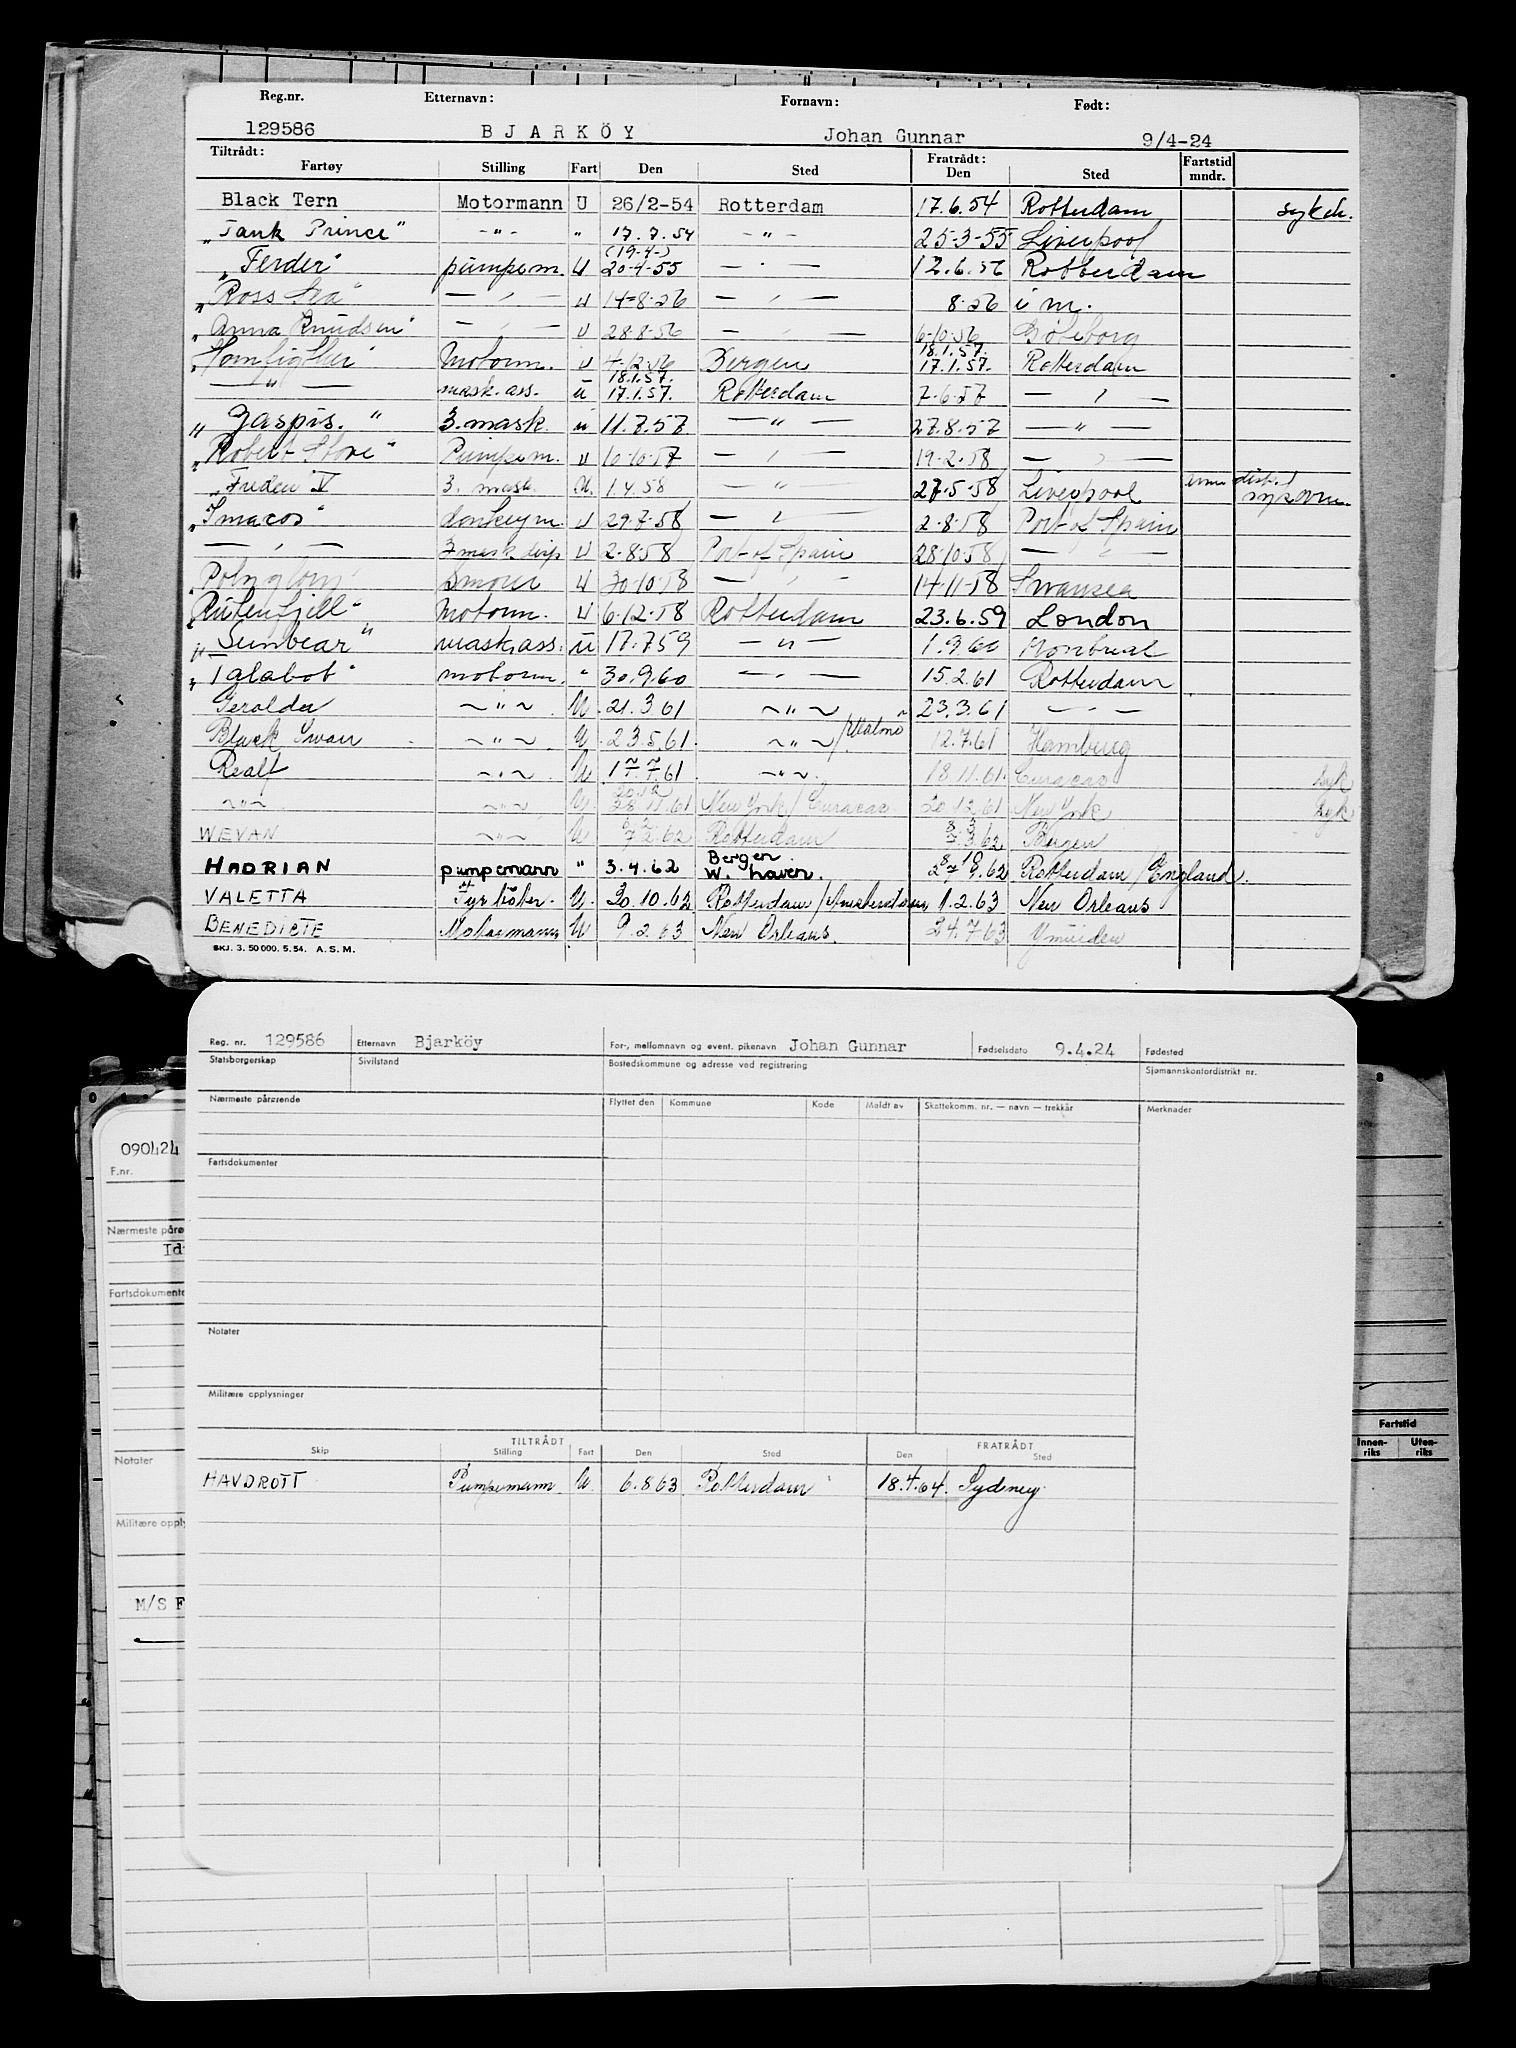 Reg.nr. Etternavn: Fornavn: Født:
129586 BJARKÖY Johan Gunnar 9/4-24
Tiltrådt: Fratrådt: Fartstid
Fartøy Stilling Fart Den Sted Den Sted mndr.
Black Tern Motormann U 26/2-54 Rotterdam 17.6.54 Rotterdam sykeh.
„Tank Prince" -"- " 17.7.54 -"- 25-3-55 Liverpool
(19-4-)
„Ferder" pumpem. U 20-4-55 - " - 12.6.56 Rotterdam
„Ross Sea" — " — U 14-8-56 — " — 8-56 i m.
„Anna Knudsen" — " — U 28-8-56 — " — 6-10-56 Göteborg
Motorm. U 4-12-56 Bergen 18.1.57. 17.1.57. Rotterdam
— " — mask.ass. U 18.1.57. 17.1.57. Rotterdam 7-6-57 — " —
„Jaspis." 3.mask. U 11.7.57 — " — 27-8-57 — " —
„Robert Stove" Pumpem. U 10-10-57 — " — 19-2-58 — " —
3. mask. U. 1.4.58 — " — 27-5-58 Liverpool
donkeym. U 29-7-58 — " — 2-8-58 Port of Spain
— " — 3 mask disp U 2-8-58 Port of Spain 28-10-58 — " —
„Polyglory" Smører U 30-10-58 — " — 14-11-58 Swansea
„Rutenfjell" Motorm. U 6-12-58 Rotterdam 23.6.59 London
„Sunbear" mask.ass. U 17.7.59 — " — 1.9.60 Montreal
„Talabot" motorm. " 30.9.60 — " — 15.2.61 Rotterdam
Geralda ~ " ~ U. 21.3.61 ~ " ~ 23.3.61 - " -
Black Swan ~ " ~ U. 23.5.61. ~ " ~ /Malmö 12.7.61 Hamburg
Realf ~ " ~ U 17.7.61 ~ " ~ 18.11.61. Curacao Syk
~ " ~ ~ " ~ U. 28.11.61 New York / Curacao 20.12.61 New York Syk
WEVAN ~ " ~ U 7.2.62 Rotterdam 7.3.62 Bergen
HADRIAN pumpemann " 3.4.62 Bergen W. haven. Rotterdam/England.
VALETTA Fyrbøter. U. 30.10.62 Rotterdam/Amsterdam 1.2.63 New Orleans
BENEDICTE Motormann U 9.2.63 New Orleans. 24.7.63 Ymuiden
SKJ. 3. 50 000. 5. 54. A. S. M.
Reg. nr. 129586 Etternavn Bjarköy For-, mellomnavn og event. pikenavn Johan Gunnar Fødselsdato 9.4.24 Fødested
Statsborgerskap Sivilstand Bostedskommune og adresse ved registrering Sjømannskontordistrikt nr.
Nærmeste pårørende Flyttet den Kommune Kode Meldt av Skattekomm. nr. — navn — trekkår Merknader
Fartsdokumenter
Notater
Militære opplysninger
TILTRÅDT FRATRÅDT
Skip Stilling Fart Den Sted Den Sted
HAVDROTT Pumpemann U. 6.8.63 Rotterdam 18.4.64. Sydney
090424
F.nr.
Nærmeste påra
Id
Fartsdokumente
Notater
Militære opply
M/S F
8
Fartstid
Innen-riks Uten-riks